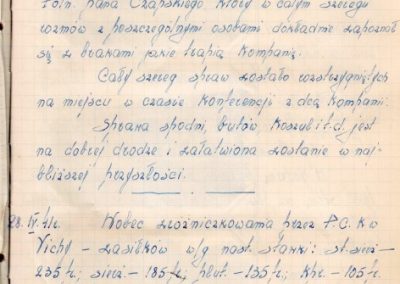 Poln. pana Czapskiego który w całym szeregu
rozmów z poszczególnymi osobami dokładnie zapoznał
się z brakami jakie trapią Kompanię.
Cały szereg spraw zostało rozstrzygniętych
na miejscu w czasie konferencji z dcą Kompanii.
Sprawa spodni, butów Koszul i t.d. jest
na dobrej drodze i załatwiona zostanie w naj-
bliższej przyszłości.
28.IV.41r. Wobec zróżniczkowania przez P.C.K. w
Vichy – zasiłków w/g nast. stawki: st. sierż –
235 fr.; sierż – 185 fr.; plut. – 135 fr.; Kpr. – 105 fr.